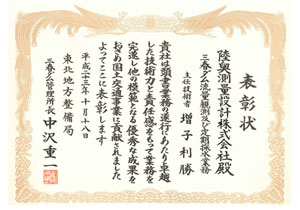 表彰状
陸奥測量設計株式会社殿
三春ダム流量観測及び定期採水業務
主任技術者 増子利勝
貴社は頭書業務の遂行にあたり卓越
した技術力と責任感をもって業務を
完遂し他の模範となる優秀な成果を
おさめ国土交通事業に貢献されました
よってここに表彰します
平成二十三年十月十八日
東北地方整備局
三春ダム管理所長 中沢重一